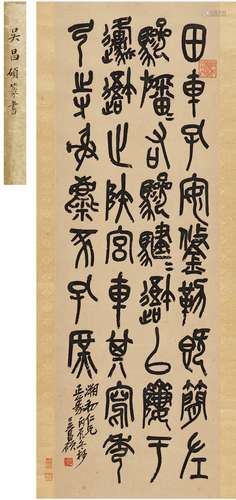 吳昌碩篆書
田車孔安鋚勒既簡左
驂旛=右驂騝=以隮于
邍止陝宮車其寫秀
弓寺射麋豕孔庶
仁兄
正篆丙辰冬
吳昌碩